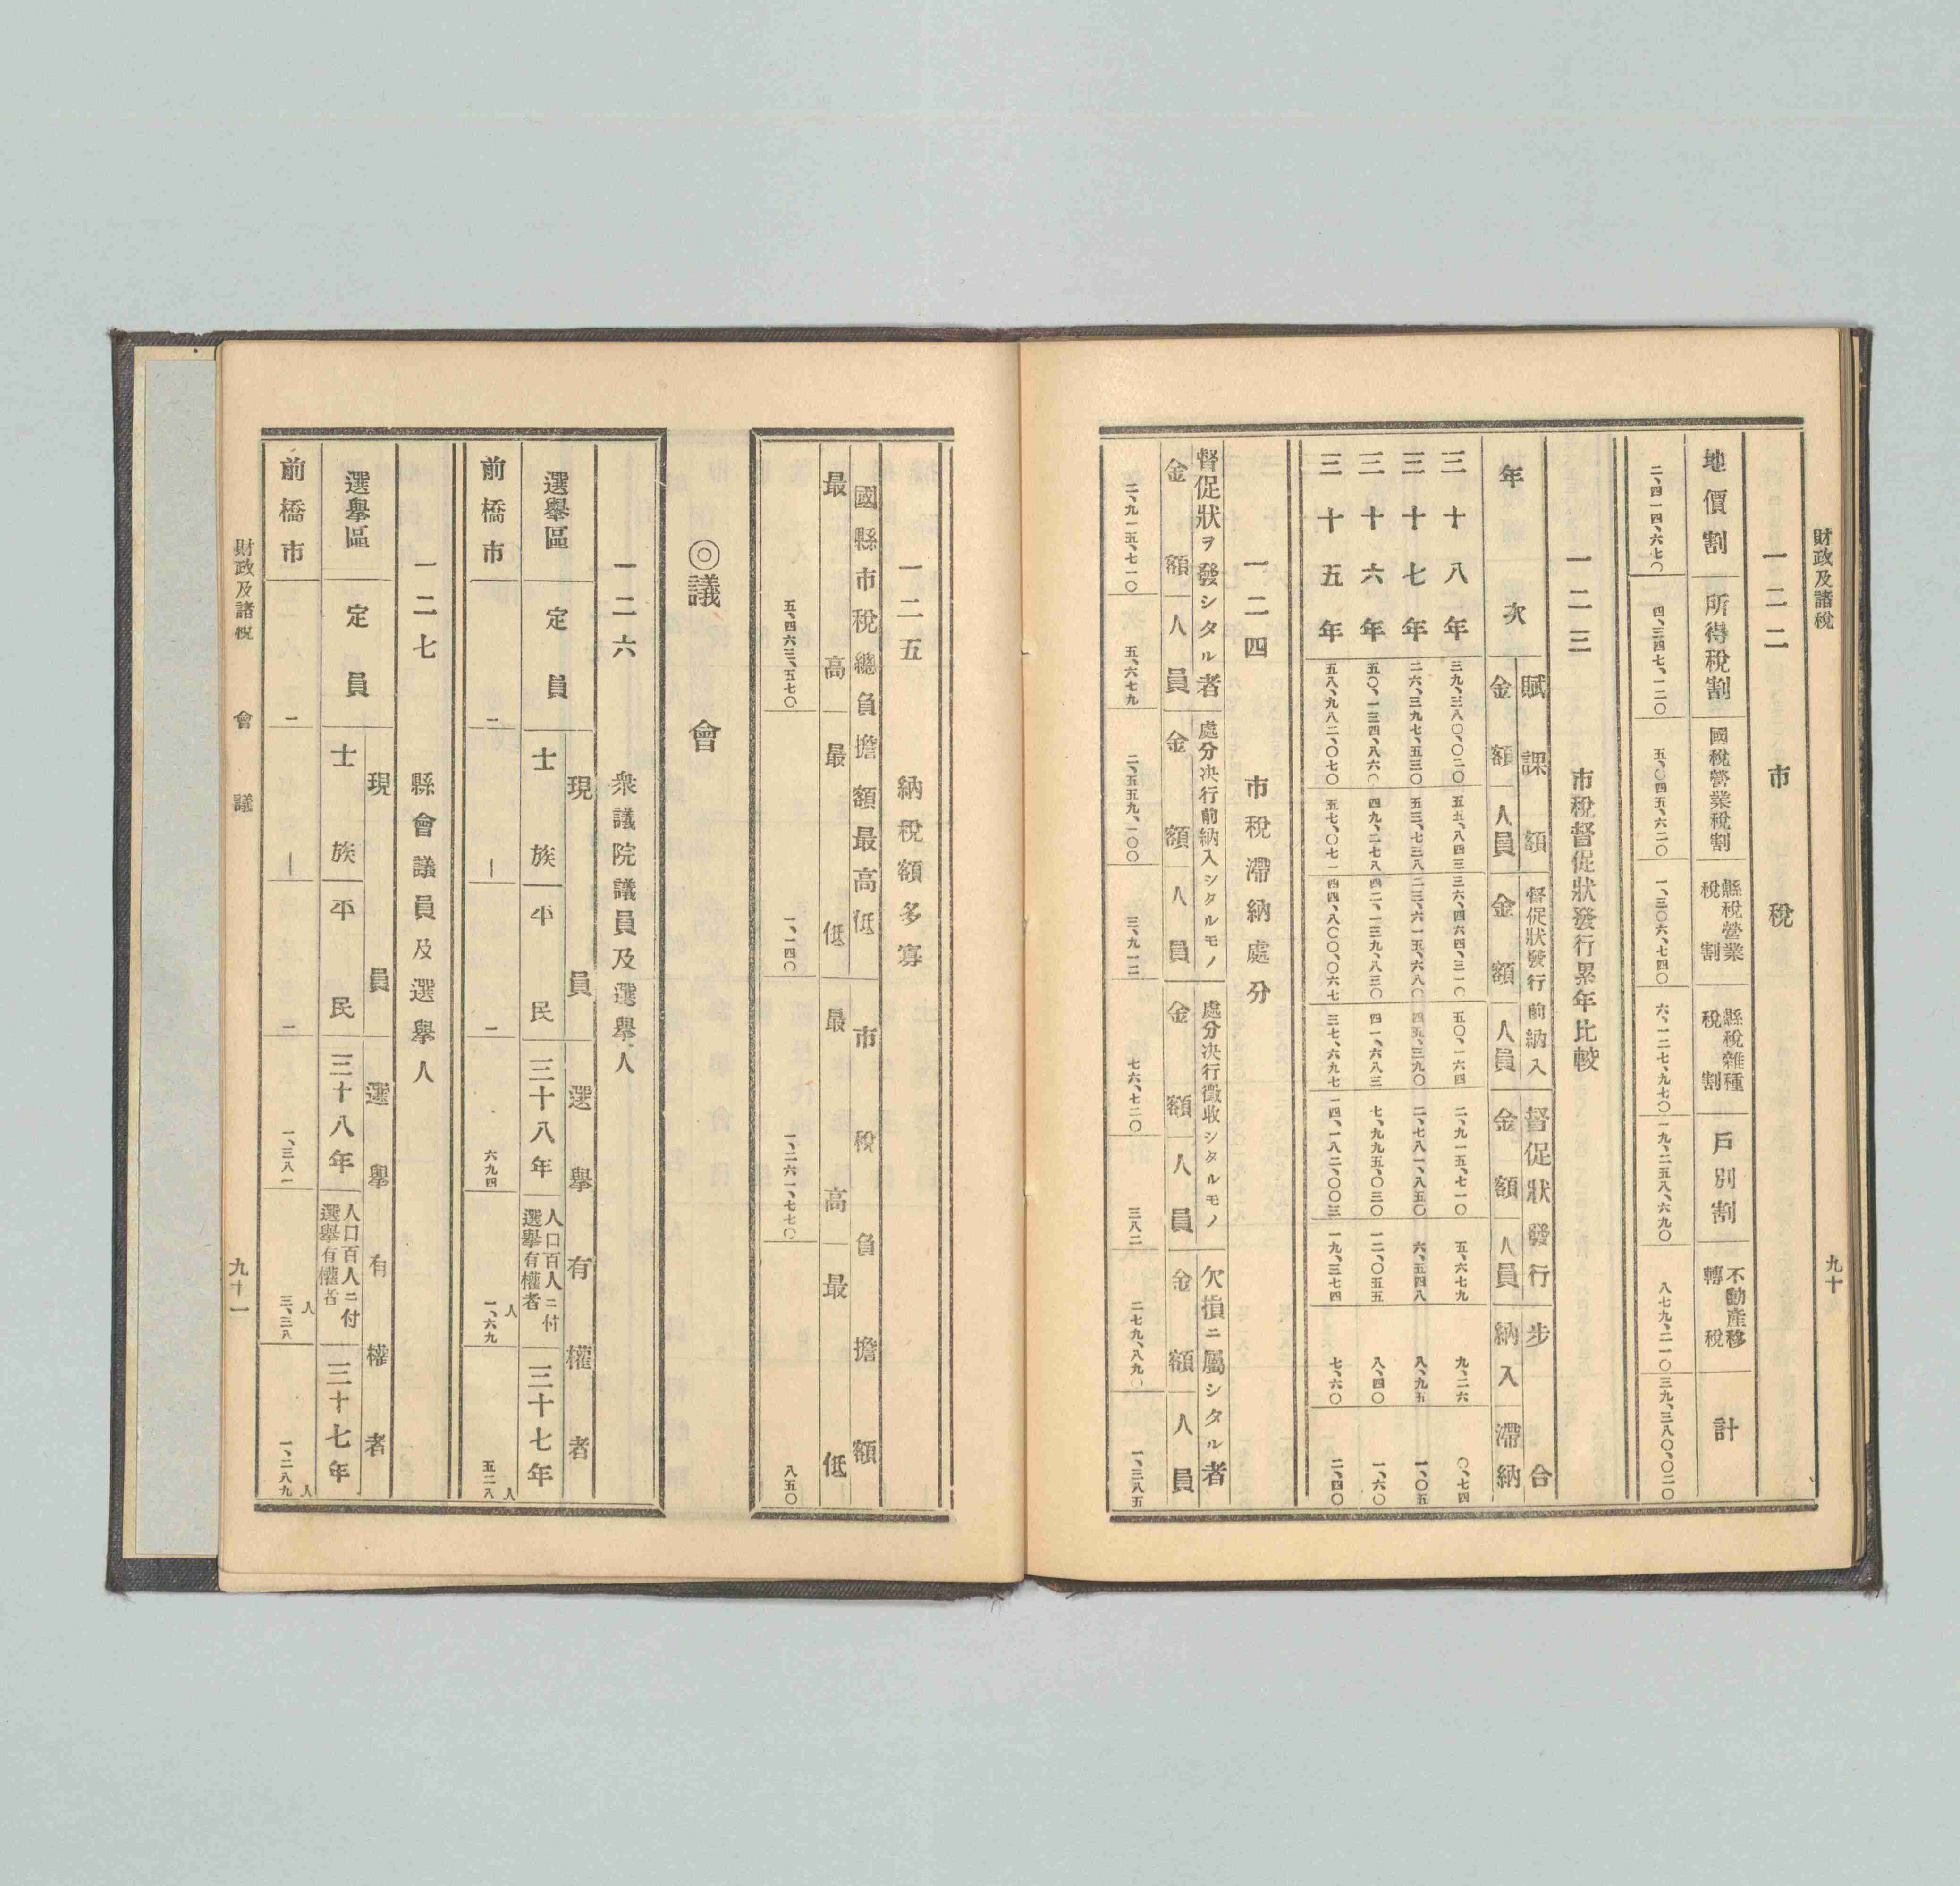 財政及諸税
九十
一二二 市税
地價割 所得税割 國税營業税割 縣税營業税割 縣税雜種税割 戶別割 不動產移轉税 計
二、四一四、六七〇 四、三四七、一二〇 五、〇四五、六二〇 一、三〇六、七四〇 六、一二七、九七〇 一九、二五八、六九〇 八七九、二一〇 三九、三八〇、〇二〇
一二三 市税督促狀發行累年比較
年次 賦課額 督促狀發行前納入 督促狀發行 步合
金額 人員 金額 人員 金額 人員 納入 滯納
三十八年 三九、三八〇、〇二〇 五五、八四三 三六、四六四、三一〇 五〇、一六四 二、九一五、七一〇 五、六七九 九、二六 〇、七四
三十七年 二六、三九七、五三〇 五三、七三八 二三、六一五、六八〇 四五、三九〇 二、七八一、八五〇 六、五四八 八、九五 一、〇五
三十六年 五〇、一三四、八六〇 四九、二七八 四二、一三九、八三〇 四一、六八三 七、九九五、〇三〇 一二、〇五五 八、四〇 一、六〇
三十五年 五八、九八二、〇七〇 五七、〇七一 四四、八〇〇、〇六七 三七、六九七 一四、一八二、〇〇三 一九、三七四 七、六〇 二、四〇
一二四 市税滯納處分
督促狀ヲ發シタル者 處分決行前納入シタルモノ 處分決行徵收シタルモノ 欠損ニ屬シタル者
金額 人員 金額 人員 金額 人員 金額 人員
二、九一五、七一〇 五、六七九 二、五五九、一〇〇 三、九一二 七六、七二〇 三八二 二七九、八九〇 一、三八五
一二五 納税額多寡
國縣市税總負擔額最高低 市税負擔額
最高 最低 最高 最低
五、四六三、五七〇 一、一四〇 一、二六一、七七〇 八五〇
◎議會
一二六 衆議院議員及選擧人
選擧區 定員 現員 選擧有權者
士族 平民 三十八年 人口百人ニ付選擧有權者 三十七年
前橋市 一 ― 一 六九四 人 一、六九 人 五二八
一二七 縣會議員及選擧人
選擧區 定員 現員 選擧有權者
士族 平民 三十八年 人口百人ニ付選擧有權者 三十七年
前橋市 一 ― 一 一、三八一 人 三、三八 人 一、二八九
財政及諸税 會議
九十一